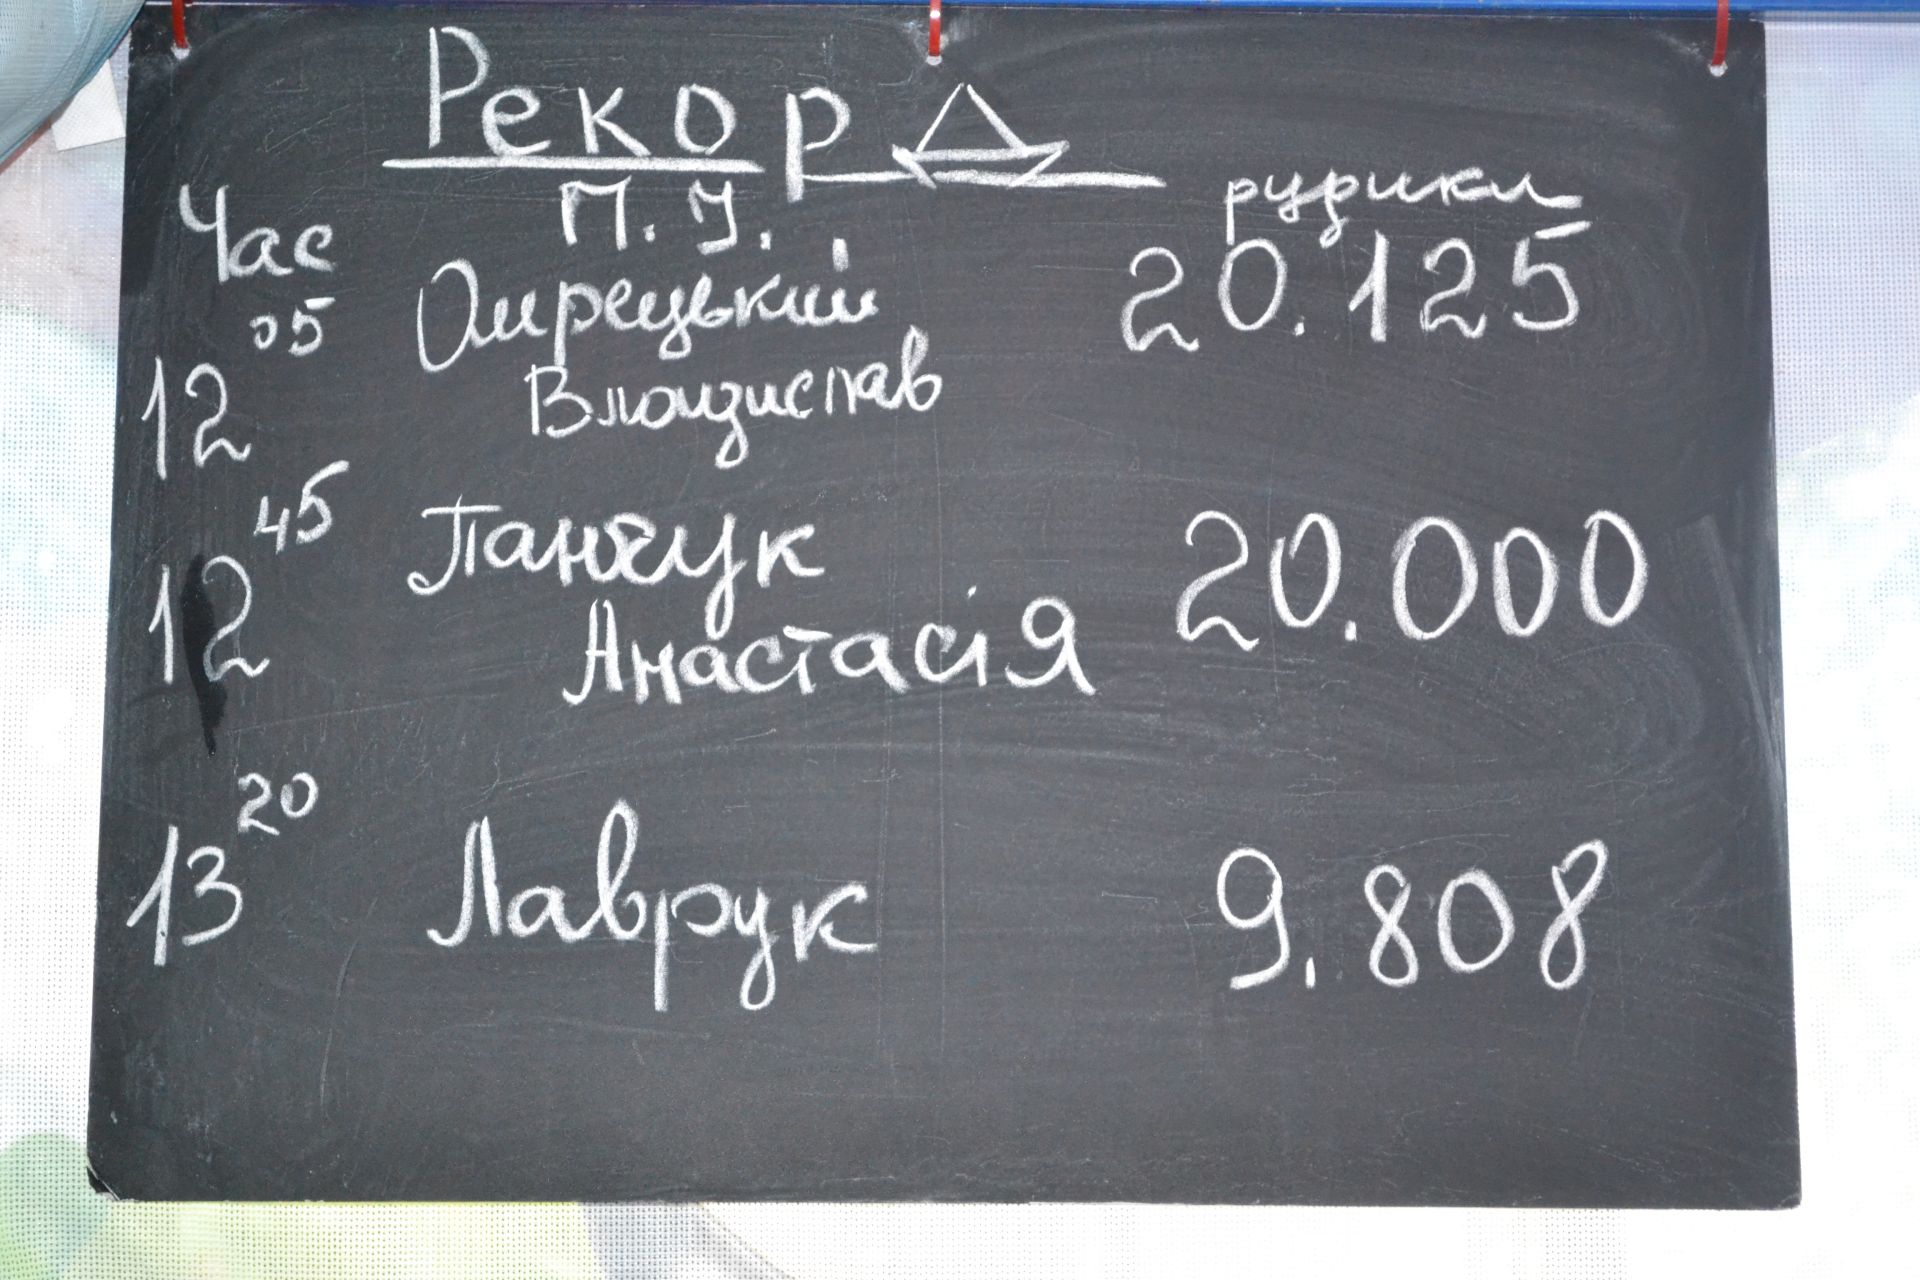 Рекорд
Час П.І. рудики
12 05 Омрецький 20.125
Владислав
12 45 Панчук 20.000
Анастасія
13 20 Лаврук 9.808